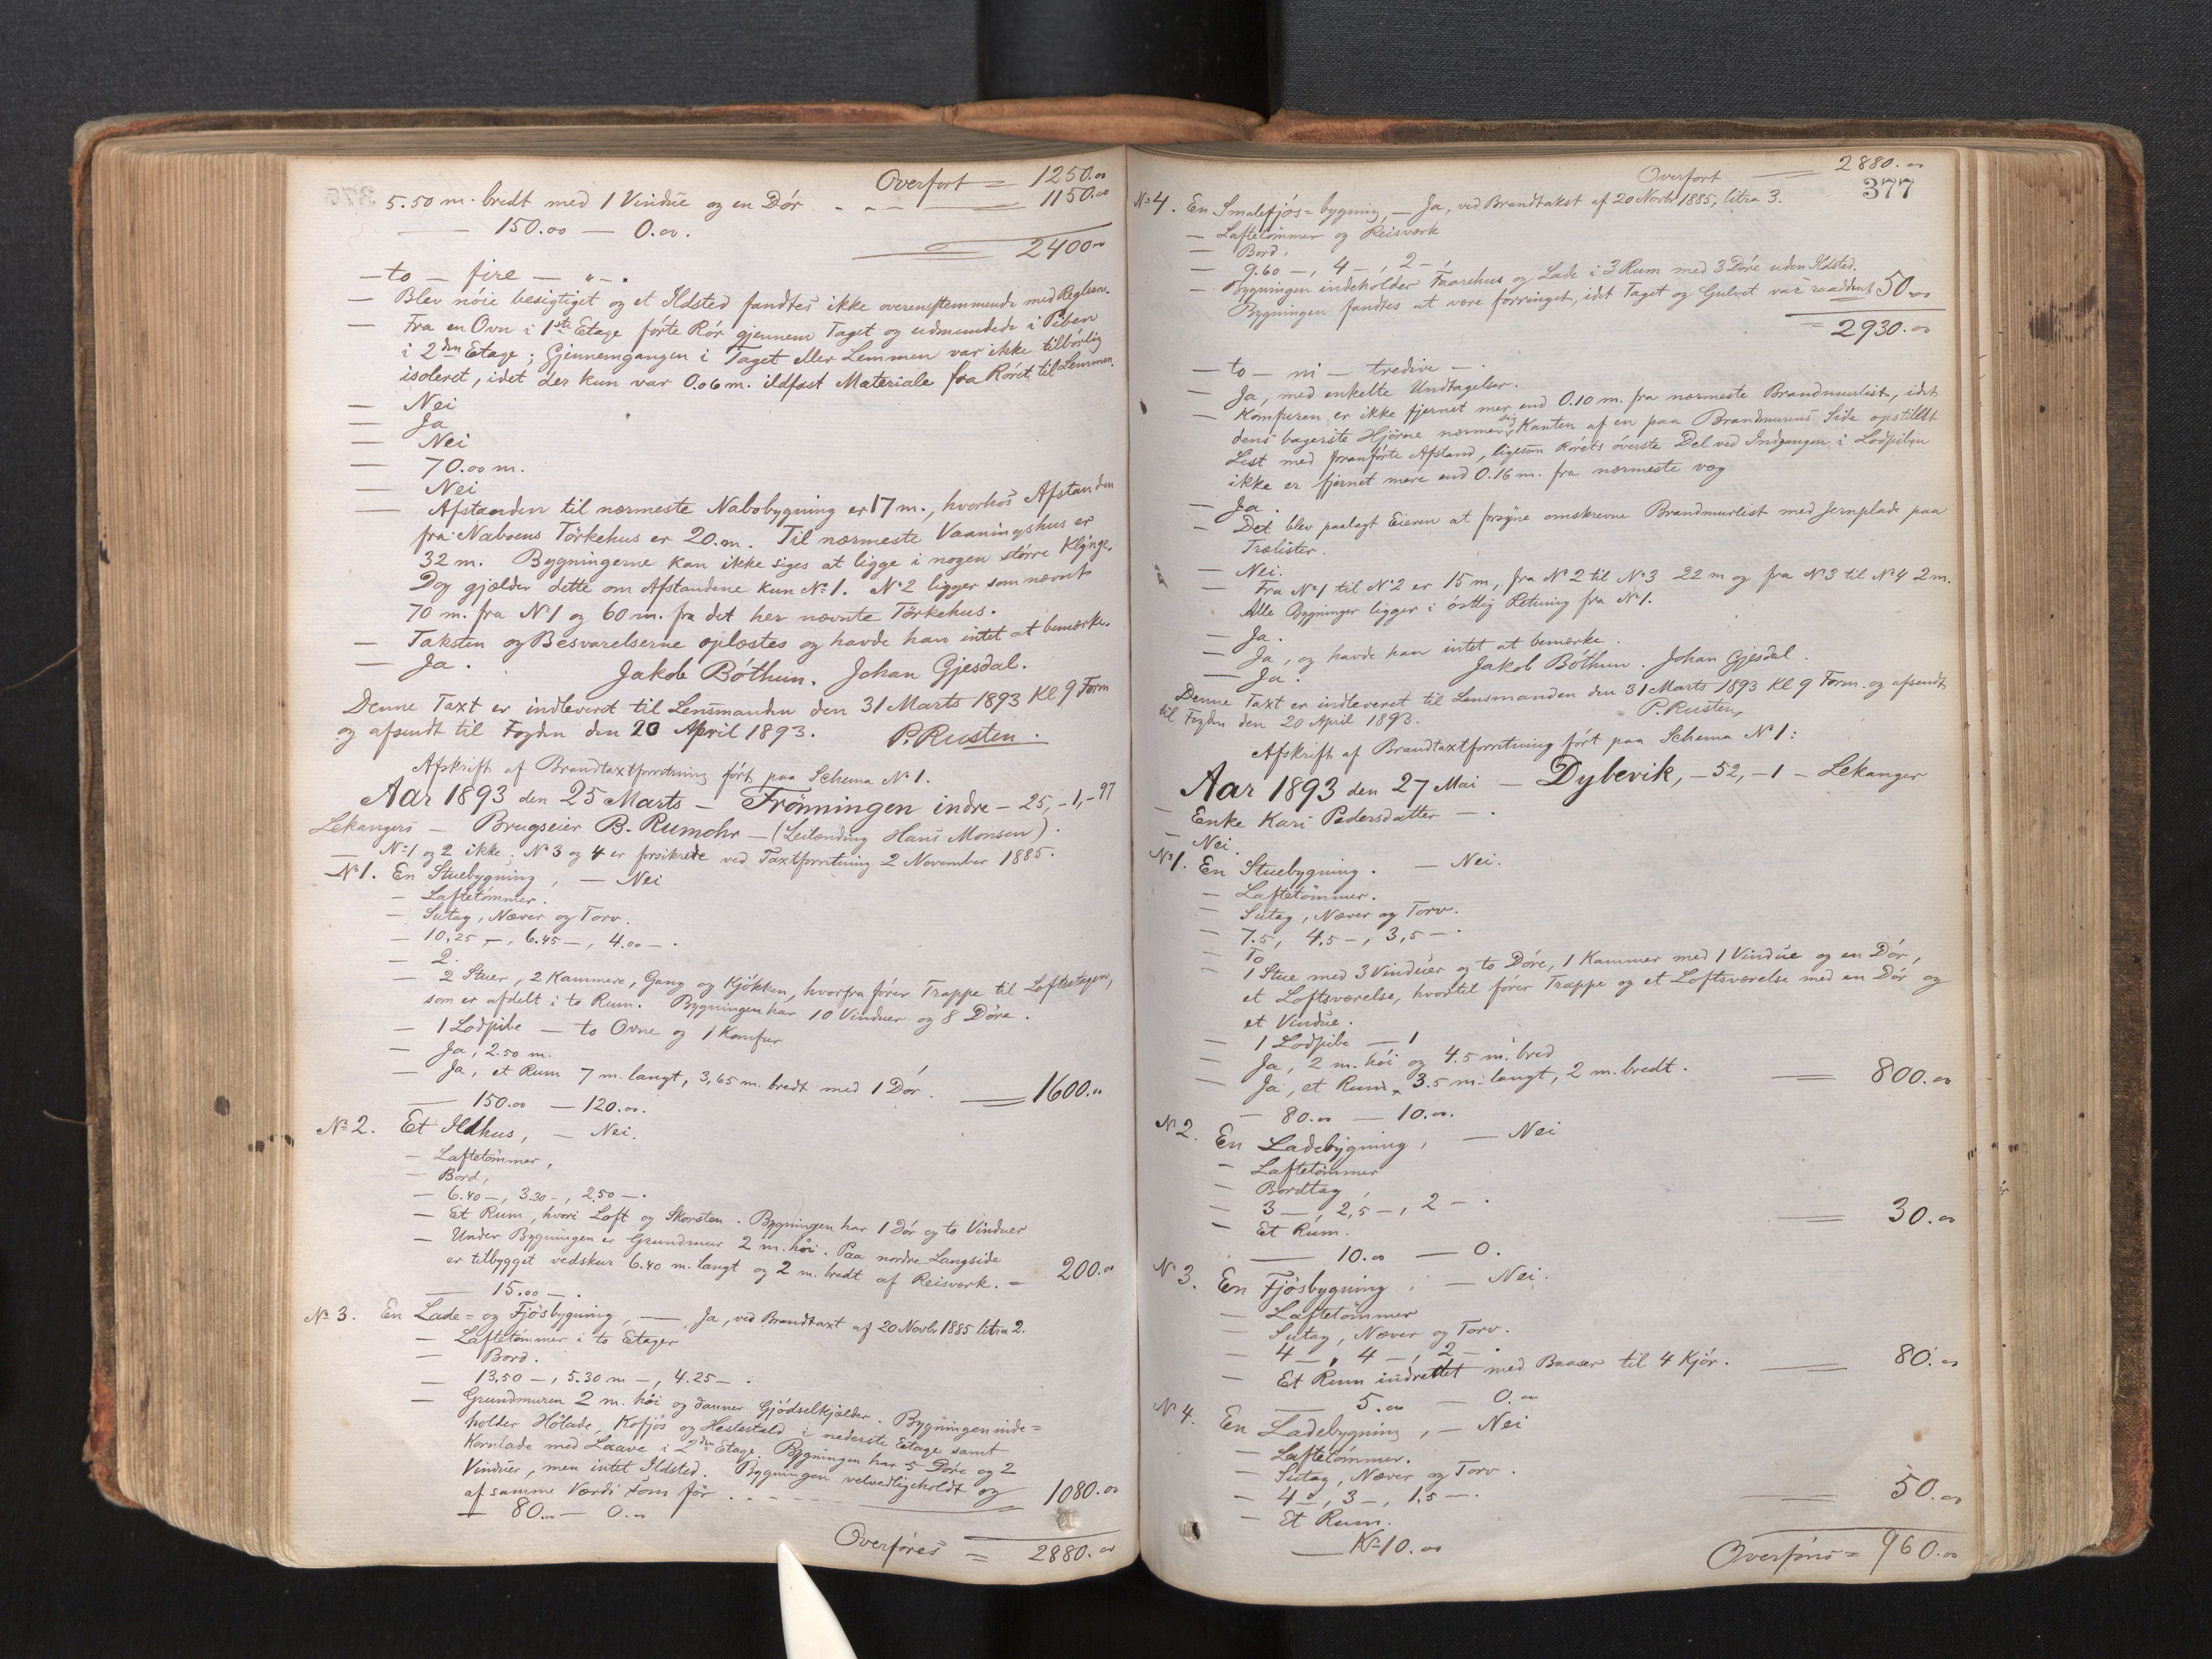 Overført = 1250.00
5.50 m. bredt med 1 Vindue og en Dör - - - 1150.00
— 150.00 — 0.00.
2400.00
— to — fire — " — .
— Blev nöie besigtiget og et Ildsted fandtes ikke overensstemmende med Reglem.
— Fra en Ovn i 1ste Etage förte Rör gjennem Taget og udmundede i Piben
i 2den Etage; Gjennemgangen i Taget eller Lemmen var ikke tilbörlig
isoleret, idet der kun var 0.06 m. ildfast Materiale fra Röret til Lemmen.
— Nei
— Ja
— Nei
— 70.00 m.
— Nei
— Afstanden til nærmeste Nabobygning er 17 m., hvorhos Afstanden
fra Naboens Törkehus er 20. m. Til nærmeste Vaaningshus er
32 m. Bygningerne kan ikke siges at ligge i nogen större Klynge.
Dog gjælder dette om Afstandene kun No 1. No 2 ligger som nævnt
70 m. fra No 1 og 60 m. fra det her nævnte Törkehus.
— Taksten og Besvarelserne oplæstes og havde han intet at bemærke.
— Ja. Jakob Böthun. Johan Gjesdal.
Denne Taxt er indleveret til Lensmanden den 31 Marts 1893 Kl 9 Form
og afsendt til Fogden den 20 April 1893. P. Rusten.
Afskrift af Brandtaxtforretning fört paa Schema No 1.
Aar 1893 den 25 Marts — Frönningen indre — 25, — 1, — 97
Lekangers — Brugseier B. Rumohr — (Leilænding Hans Monsen).
— No 1 og 2 ikke; No 3 og 4 er forsikrede ved Taxtforretning 2 November 1885.
No 1. En Stuebygning, — Nei
— Laftetömmer.
— Sutag, Næver og Torv.
— 10,25 —, 6.45 —, 4.00 — .
— 2.
— 2 Stuer, 2 Kammere, Gang og Kjökken, hvorfra förer Trappe til Loftsetagen,
som er afdelt i to Rum. Bygningen har 10 Vinduer og 8 Döre.
— 1 Lodpibe — to Ovne og 1 Komfur
— Ja, 2.50 m.
— Ja, et Rum 7 m. langt, 3,65 m. bredt med 1 Dör. 1600.00
— 150.00 — 120.00.
No 2. Et Ildhus, — Nei.
— Laftetömmer,
— Bord,
— 6.40 —, 3.30 —, 2,50 — .
— Et Rum, hvori Loft og Skorsten. Bygningen har 1 Dör og to Vinduer
— Under Bygningen er Grundmur 2 m. höi. Paa nordre Langside
er tilbygget vedskur 6.40 m. langt og 2 m. bredt af Reisverk. — 200.00
— 15.00 — .
No 3. En Lade- og Fjösbygning, — Ja, ved Brandtaxt af 20 Novbr 1885 litra 2.
— Laftetömmer i to Etager
— Bord.
— 13,50 —, 5.30 m —, 4.25 — .
— Grundmuren 2 m. höi og danner Gjödselkjælder. Bygningen inde=
holder Hölade, Kofjös og Hestestald i nederste Etage samt
Kornlade med Laave i 2den Etage. Bygningen har 5 Döre og 2
Vinduer, men intet Ildsted. Bygningen velvedligeholdt og
af samme Værdi som för . - - - 1080.00
— 80.00 — 0.00
Overföres = 2880.00
Overfört — 2880.00
377
No 4. En Smalefjös=bygning, — Ja, ved Brandtakst af 20 Novbr 1885, litra 3.
— Laftetömmer og Reisværk
— Bord,
— 9.60 —, 4 —, 2 —,
— Bygningen indeholder Faarehus og Lade i 3 Rum med 3 Döre uden Ildsted.
Bygningen fandtes at være forringet, idet Taget og Gulvet var raaddent 50.00
= 2930.00
— to — ni — tredive — .
— Ja, med enkelte Undtagelser.
— Komfuren er ikke fjernet mer end 0.10 m. fra nærmeste Brandmurlist, idet
dens bagerste Hjörne nærmer sig Kanten af en paa Brandmurens Side opstillet
List med foranförte Afstand, ligesom Rörets överste Del ved Indgangen i Lodpiben
ikke er fjernet mere end 0.16 m. fra nærmeste væg
— Ja.
— Det blev paalagt Eieren at forsyne omskrevne Brandmurlist med Jernplade paa
Trælister.
— Nei.
— Fra No 1 til No 2 er 15 m, fra No 2 til No 3 22 m og fra No 3 til No 4 2 m.
Alle Bygninger ligger i östlig Retning fra No 1.
— Ja.
— Ja, og havde han intet at bemærke.
— Ja. Jakob Böthun. Johan Gjesdal.
Denne Taxt er indleveret til Lensmanden den 31 Marts 1893 Kl 9 Form. og afsendt
til Fogden den 20 April 1893. P. Rusten
Afskrift af Brandtaxtforretning fört paa Schema No 1:
Aar 1893 den 27 Mai — Dybevik, — 52, — 1 — Lekanger
— Enke Kari Pedersdatter — .
— Nei
No 1. En Stuebygning. — Nei.
— Laftetömmer.
— Sutag, Næver og Torv.
— 7.5, 4,5 —, 3,5 — .
— To
— 1 Stue med 3 Vinduer og to Döre, 1 Kammer med 1 Vindue og en Dör,
et Loftsværelse, hvortil förer Trappe og et Loftsværelse med en Dör og
et Vindue.
— 1 Lodpibe — 1
— Ja, 2 m. höi og 4.5 m. bred
— Ja, et Rum, 3.5 m. langt, 2 m. bredt. 800.00
— 80.00 — 10.00.
No 2. En Ladebygning, — Nei
— Laftetömmer
— Bordtag,
— 3 —, 2,5 —, 2 — .
— Et Rum. 30.00
— 10.00 — 0.
No 3. En Fjösbygning. — Nei.
— Laftetömmer
— Sutag, Næver og Torv.
— 4 —, 4 —, 2 — .
— Et Rum indrettet med Baaser til 4 Kjör. 80.00
— 5.00 — 0.00
No 4. En Ladebygning, — Nei
— Laftetömmer.
— Sutag, Næver og Torv.
— 4 —, 3 —, 1,5 — .
— Et Rum. 50.00
— Kr 10.00
Overföres = 960.00